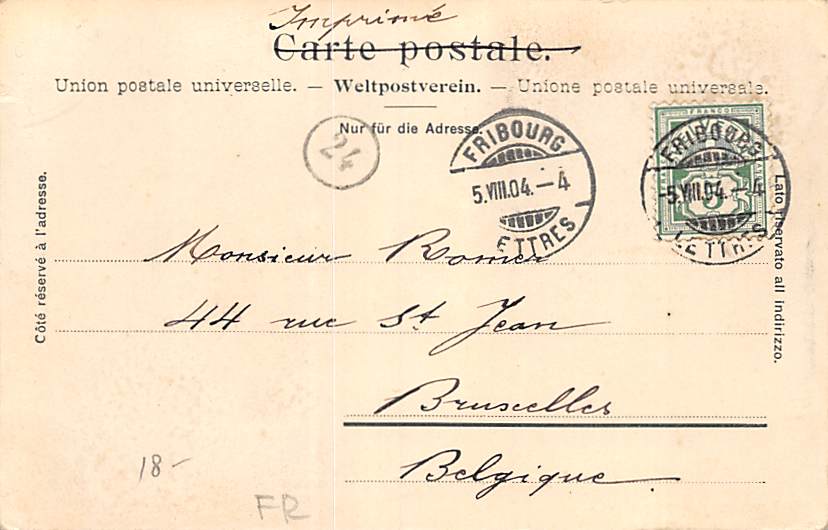 Imprimé
Carte postale.
Union postale universelle. — Weltpostverein. — Unione postale universale.
Nur für die Adresse.
24
FRIBOURG
5.VIII.04.–4
LETTRES
FRANCO
FRIBOURG
5.VIII.04.–4
LETTRES
5
Côté réservé à l'adresse.
Lato riservato all indirizzo.
Monsieur Romer
44 rue St Jean
Bruxelles
Belgique
18-
FR